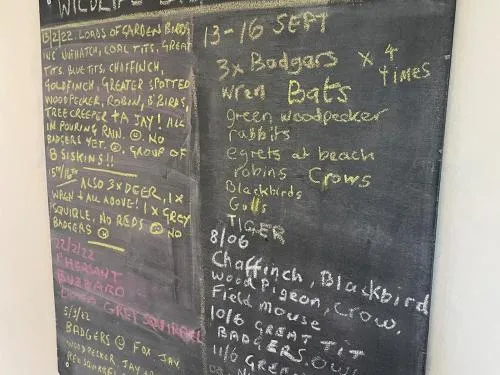 WILDLIFE
13/2/22. LOADS OF GARDEN BIRDS
INC NUTHATCH, COAL TITS, GREAT
TITS, BLUE TITS, CHAFFINCH,
GOLDFINCH, GREATER SPOTTED
WOODPECKER, ROBIN, B'BIRDS,
TREECREEPER + A JAY! ALL
IN POURING RAIN. ☹ NO
BADGERS YET. ☹. GROUP OF
8 SISKINS!!
ALSO 3x DEER, 1 x
WREN + ALL ABOVE! 1 x GREY
SQUIRLE, NO REDS ☹ NO
BADGERS ☹
22/2/22
PHEASANT
BUZZARD
GREY SQUIRREL
BADGERS ☺ FOX. JAY
WOODPECKER, JAY
RED SQUIRREL
13-16 SEPT
3x Badgers x 4
times
wren Bats
green woodpecker
rabbits
egrets at beach
robins Crows
Blackbirds
Gulls
TIGER
8/06
Chaffinch, Blackbird
Wood Pigeon, Crow.
Field mouse
10/6 GREAT TIT
BADGERS. OWL
11/6